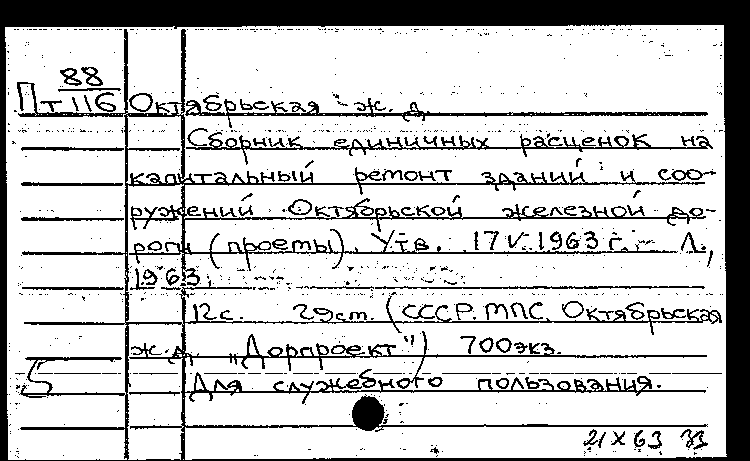 88
Пт 116 Октябрьская ж. д.
Сборник единичных расценок на
капитальный ремонт зданий и соо-
ружений Октябрьской железной до-
роги (проеты). Утв. 17 V 1963 г. - Л.,
1963.
12с. 29см. (СССР. МПС. Октябрьская
ж. д. „Дорпроект") 700экз.
5 Для служебного пользования.
21 X 63